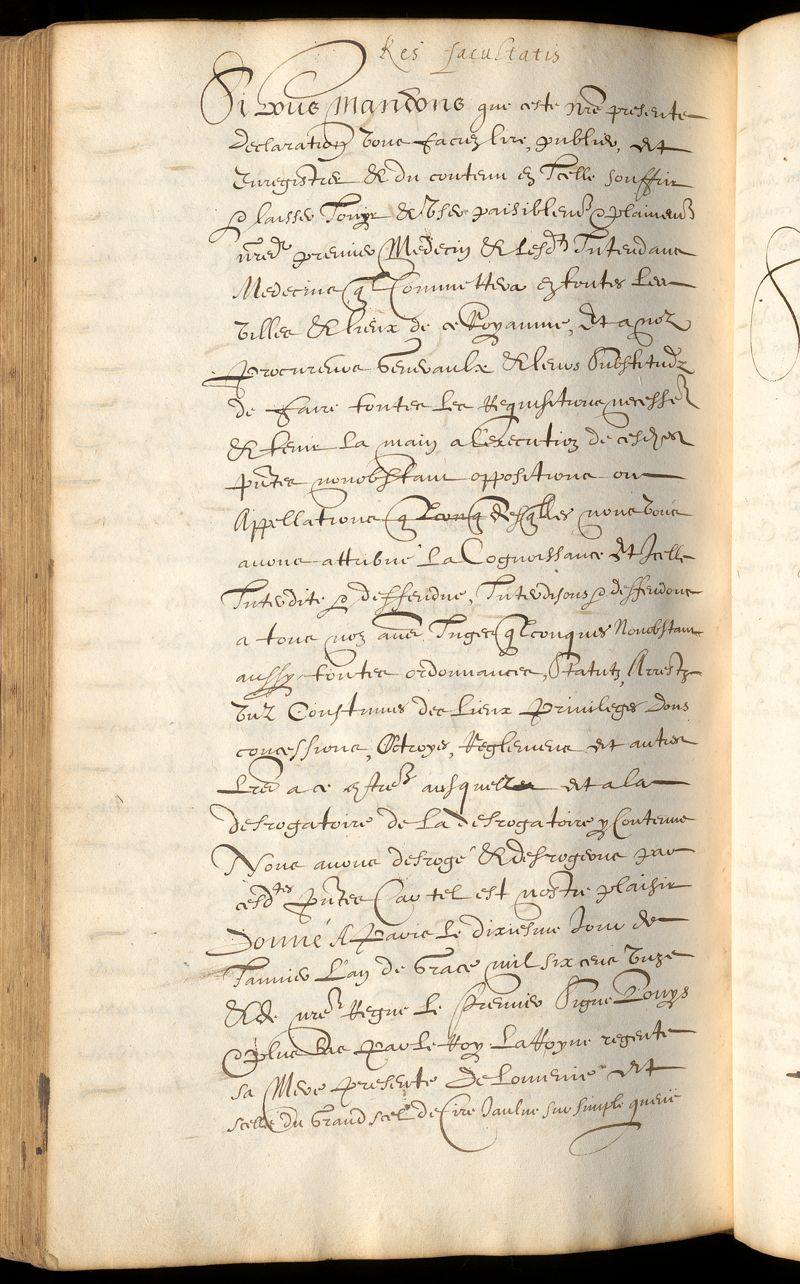 Res facultatis
Si vous Mandons que ceste nre presente
declaration vous faciez lire, publier, Et
Enregistrer & du contenu en Icelle souffrir
& laisser Jouyr & User paisiblemt & plainemt
nred premier Medecin & lesd Intendans
Medecins ql Commettera en toutes les
villes & lieux de ce Royaume, Et a noz
procureurs Generaulx & leurs Substitudz
de faire toutes les Requisitions necesses
& tenir la main a lexecution de cesd
pntes nonobstant oppositions ou
Appellations qlconq desqlles nous vous
avons attribué La Cognoissance Et Icelle
Interdite & deffendue, Interdisons & deffendons
a tous noz aues Juges qlconques Nonobstant
aussy toutes ordonnances, Statutz, Arrestz
Uz Constumes des lieux Privileges dons
concessions, Octroys, Reglemens et autres
Lres a ce contres ausquelles et a la
desrogatoire de la desrogatoire y Contenue
Nous avons desrogé & desrogeons par
cesdtes pntes Car tel est nostre plaisir
Donné A Paris le dixiesme Jour de
Janvier L'an de Grace mil six cens Unze
& de nre Regne le Premier Signé Louys
& plus bas Par le Roy La Royne regente
sa Mere presente De Lomenie Et
scellé du Grand scel de Cire Jaulne sur simple queue